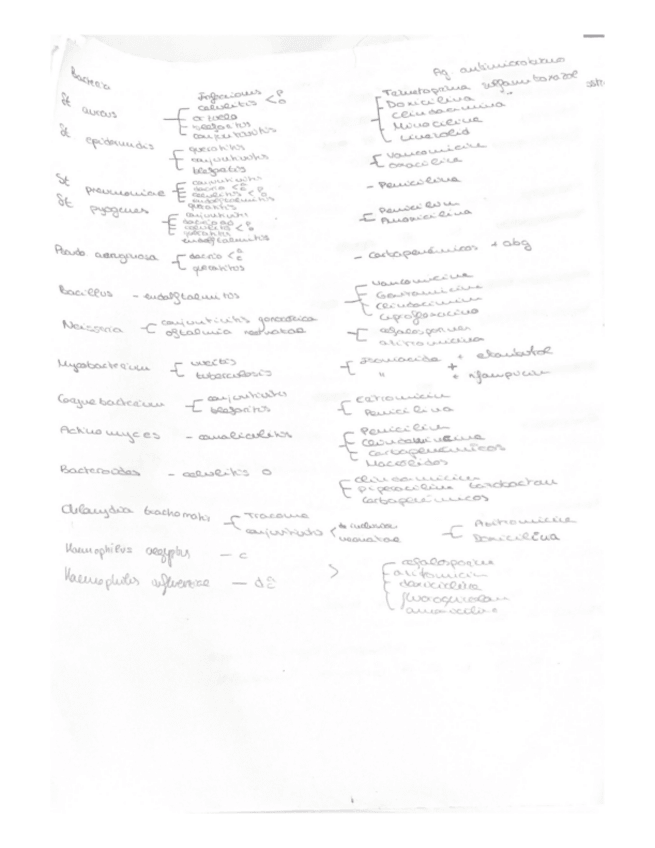 Bacteria Infecciones Ag antimicrobiano
St aureus celulitis < P O Trimetoprima sulfametoxazol
orzuelo Doxicilina
blefaritis Clindamicina
conjuntivitis Minociclina
Linezolid
St epidermidis queratitis Vancomicina
conjuntivitis oxacilina
blefaritis
St pneumoniae conjuntivitis - Penicilina
dacrio
celulitis < P O
endoftalmitis
queratitis
St pyogenes conjuntivitis Penicilina
dacrio Amoxicilina
celulitis < P O
queratitis
endoftalmitis
Pseudo aeruginosa dacrio - Carbapenémicos + abg
queratitis
Bacillus - endoftalmitis Vancomicina
Gentamicina
Clindamicina
Ciprofloxacino
Neisseria conjuntivitis gonocócica cefalosporina
oftalmia neonatae azitromicina
Mycobacterium uveitis Isoniacida + etambutol
tuberculosis " + rifampicina
Corynebacterium conjuntivitis
blefaritis Penicilina
Actinomyces - canaliculitis Penicilina
Clindamicina
Carbapenémicos
Macrólidos
Bacteroides - celulitis O Clindamicina
Piperacilina tazobactam
Carbapenémicos
Chlamydia trachomatis Tracoma Azitromicina
conjuntivitis < de inclusión Doxicilina
neonatae
Haemophilus aegyptus - c cefalosporina
Haemophilus influenzae azitromicina
doxiciclina
fluoroquinolona
amoxicilina